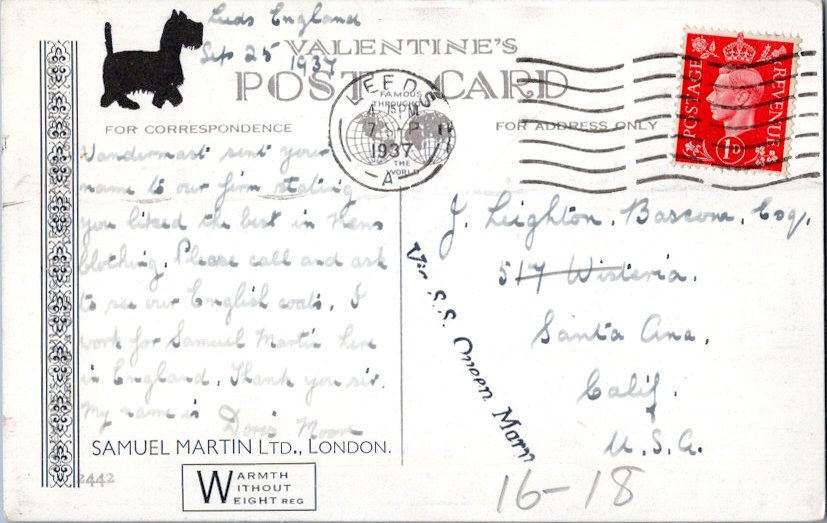 Leeds England
Sep 25 1937
VALENTINE'S
POST CARD
FAMOUS
THROUGHOUT
THE
WORLD
LEEDS
4 15PM
7 SP
1937
A
POSTAGE
REVENUE
1D
FOR CORRESPONDENCE
FOR ADDRESS ONLY
Vandermast sent your
name to our firm stating
you liked the best in Mens
clothing. Please call and ask
to see our English coats. I
work for Samuel Martin here
in England. Thank you sir.
My name is Doris Moore
SAMUEL MARTIN LTD., LONDON.
2442
WARMTH
WITHOUT
WEIGHT REG
Via S.S. Queen Mary
J. Leighton. Bascom, Esq.
517 Wisteria.
Santa Ana.
Calif.
U.S.A.
16-18